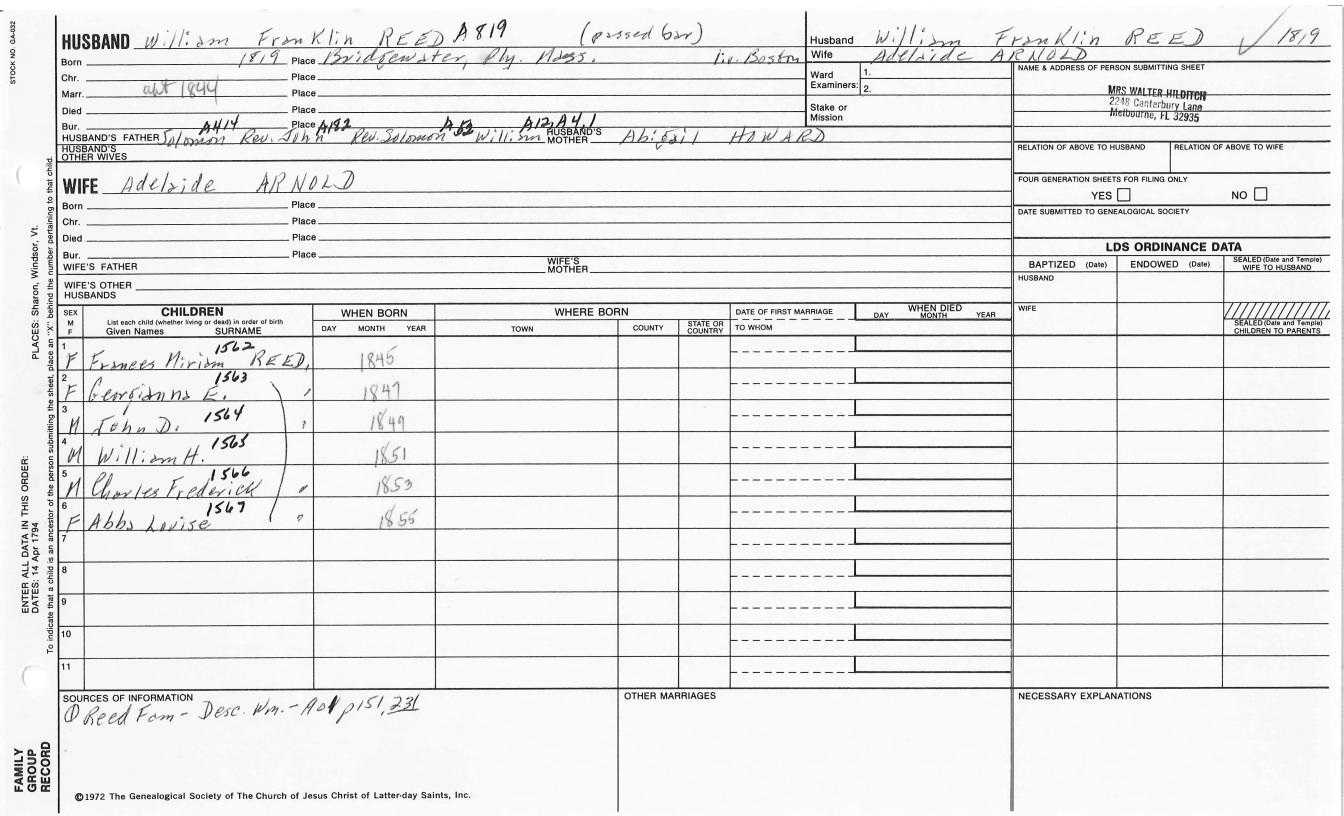 STOCK NO. GA-032
HUSBAND William Franklin REED A819 (passed bar)
Born 1819 Place Bridgewater, Ply. Mass. liv. Boston
Chr. Place
Marr. abt 1844 Place
Died Place
Bur. Place
A414 A182 A53 A12, A4.1
HUSBAND'S FATHER Solomon Rev. John Rev. Solomon William HUSBAND'S MOTHER Abigail HOWARD
HUSBAND'S OTHER WIVES
Husband William Franklin REED ✓ 1819
Wife Adelaide ARNOLD
Ward Examiners: 1.
2.
Stake or Mission
NAME & ADDRESS OF PERSON SUBMITTING SHEET
MRS WALTER HILDITCH
2248 Canterbury Lane
Melbourne, FL 32935
RELATION OF ABOVE TO HUSBAND RELATION OF ABOVE TO WIFE
FOUR GENERATION SHEETS FOR FILING ONLY
YES NO
DATE SUBMITTED TO GENEALOGICAL SOCIETY
WIFE Adelaide ARNOLD
Born Place
Chr. Place
Died Place
Bur. Place
WIFE'S FATHER WIFE'S MOTHER
WIFE'S OTHER HUSBANDS
LDS ORDINANCE DATA
BAPTIZED (Date) ENDOWED (Date) SEALED (Date and Temple) WIFE TO HUSBAND
HUSBAND
WIFE
SEALED (Date and Temple) CHILDREN TO PARENTS
SEX M F
CHILDREN
List each child (whether living or dead) in order of birth
Given Names SURNAME
WHEN BORN
DAY MONTH YEAR
WHERE BORN
TOWN COUNTY STATE OR COUNTRY
DATE OF FIRST MARRIAGE
TO WHOM
WHEN DIED
DAY MONTH YEAR
1 F Frances Miriam 1562 REED, 1845
2 F Georgianna E. 1563 " 1847
3 M John D. 1564 " 1849
4 M William H. 1565 1851
5 M Charles Frederick 1566 " 1853
6 F Abbs Louise 1567 " 1855
7
8
9
10
11
SOURCES OF INFORMATION
① Reed Fam - Desc. Wm. - p151, 231
OTHER MARRIAGES
NECESSARY EXPLANATIONS
©1972 The Genealogical Society of The Church of Jesus Christ of Latter-day Saints, Inc.
PLACES: Sharon, Windsor, Vt.
To indicate that a child is an ancestor of the person submitting the sheet, place an "X" behind the number pertaining to that child.
ENTER ALL DATA IN THIS ORDER:
DATES: 14 Apr 1794
FAMILY GROUP RECORD